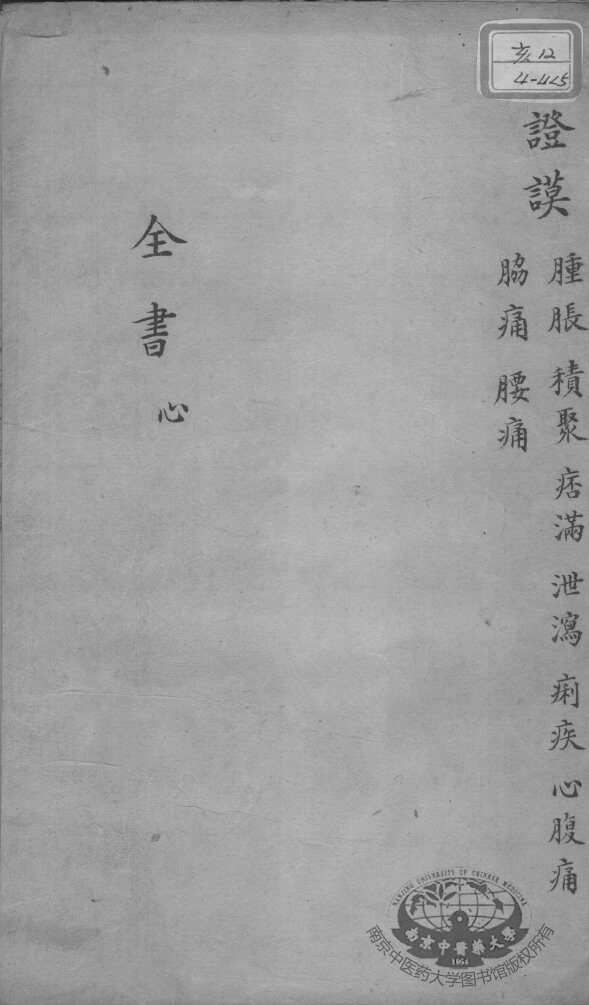 亥12
4-425
證謨
腫脹 積聚 痞滿 泄瀉 痢疾 心腹痛
脇痛 腰痛
全書
心
NANJING UNIVERSITY OF CHINESE MEDICINE
南京中醫藥大學
1954
南京中医药大学图书馆版权所有